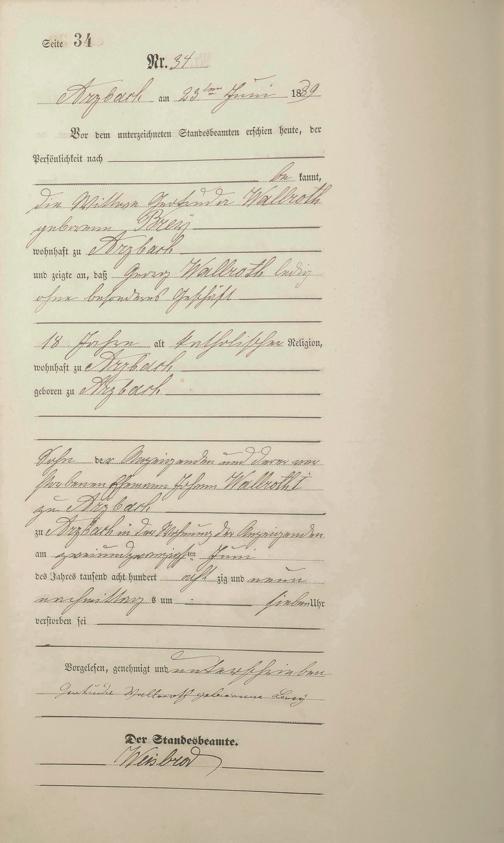 Seite 34
Nr. 34
Arzbach am 23ten Juni 1889
Vor dem unterzeichneten Standesbeamten erschien heute, der
Persönlichkeit nach
be kannt,
die Wittwe Gertrude Wallroth
geborene Brey
wohnhaft zu Arzbach
und zeigte an, daß Georg Wallroth ledig
ohne besonderes Geschäft
18 Jahre alt katholischer Religion,
wohnhaft zu Arzbach
geboren zu Arzbach
Sohn der Anzeigenden und deren ver
storbenen Ehemann Johann Wallroth I
zu Arzbach
zu Arzbach in der Wohnung der Anzeigenden
am zweiundzwanzigsten Juni
des Jahres tausend acht hundert acht zig und neun
nachmittag s um sieben Uhr
verstorben sei
Vorgelesen, genehmigt und unterschrieben
Gertrude Wallroth geborene Brey
Der Standesbeamte.
Weisbrod